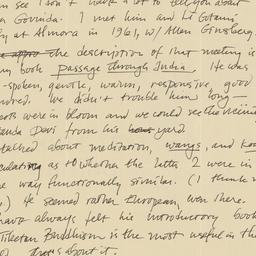 n see I don't have a lot to tell you about
a Govinda. I met him and Li Gotami
y at Almora in 1961, w/ Allen Ginsberg.
the description of that meeting is
my book Passage through India. He was
-spoken, gentle, warm, responsive, good
ored. We didn't trouble them long —
were in bloom and we could see the
Devi from his yard.
talked about meditation, wangs, and
as to whether the latter 2 were in
e way functionally similar. (I think
.) He seemed rather European, even there.
have always felt his introductory book
Tibetan Buddhism is the most useful in the
about it.